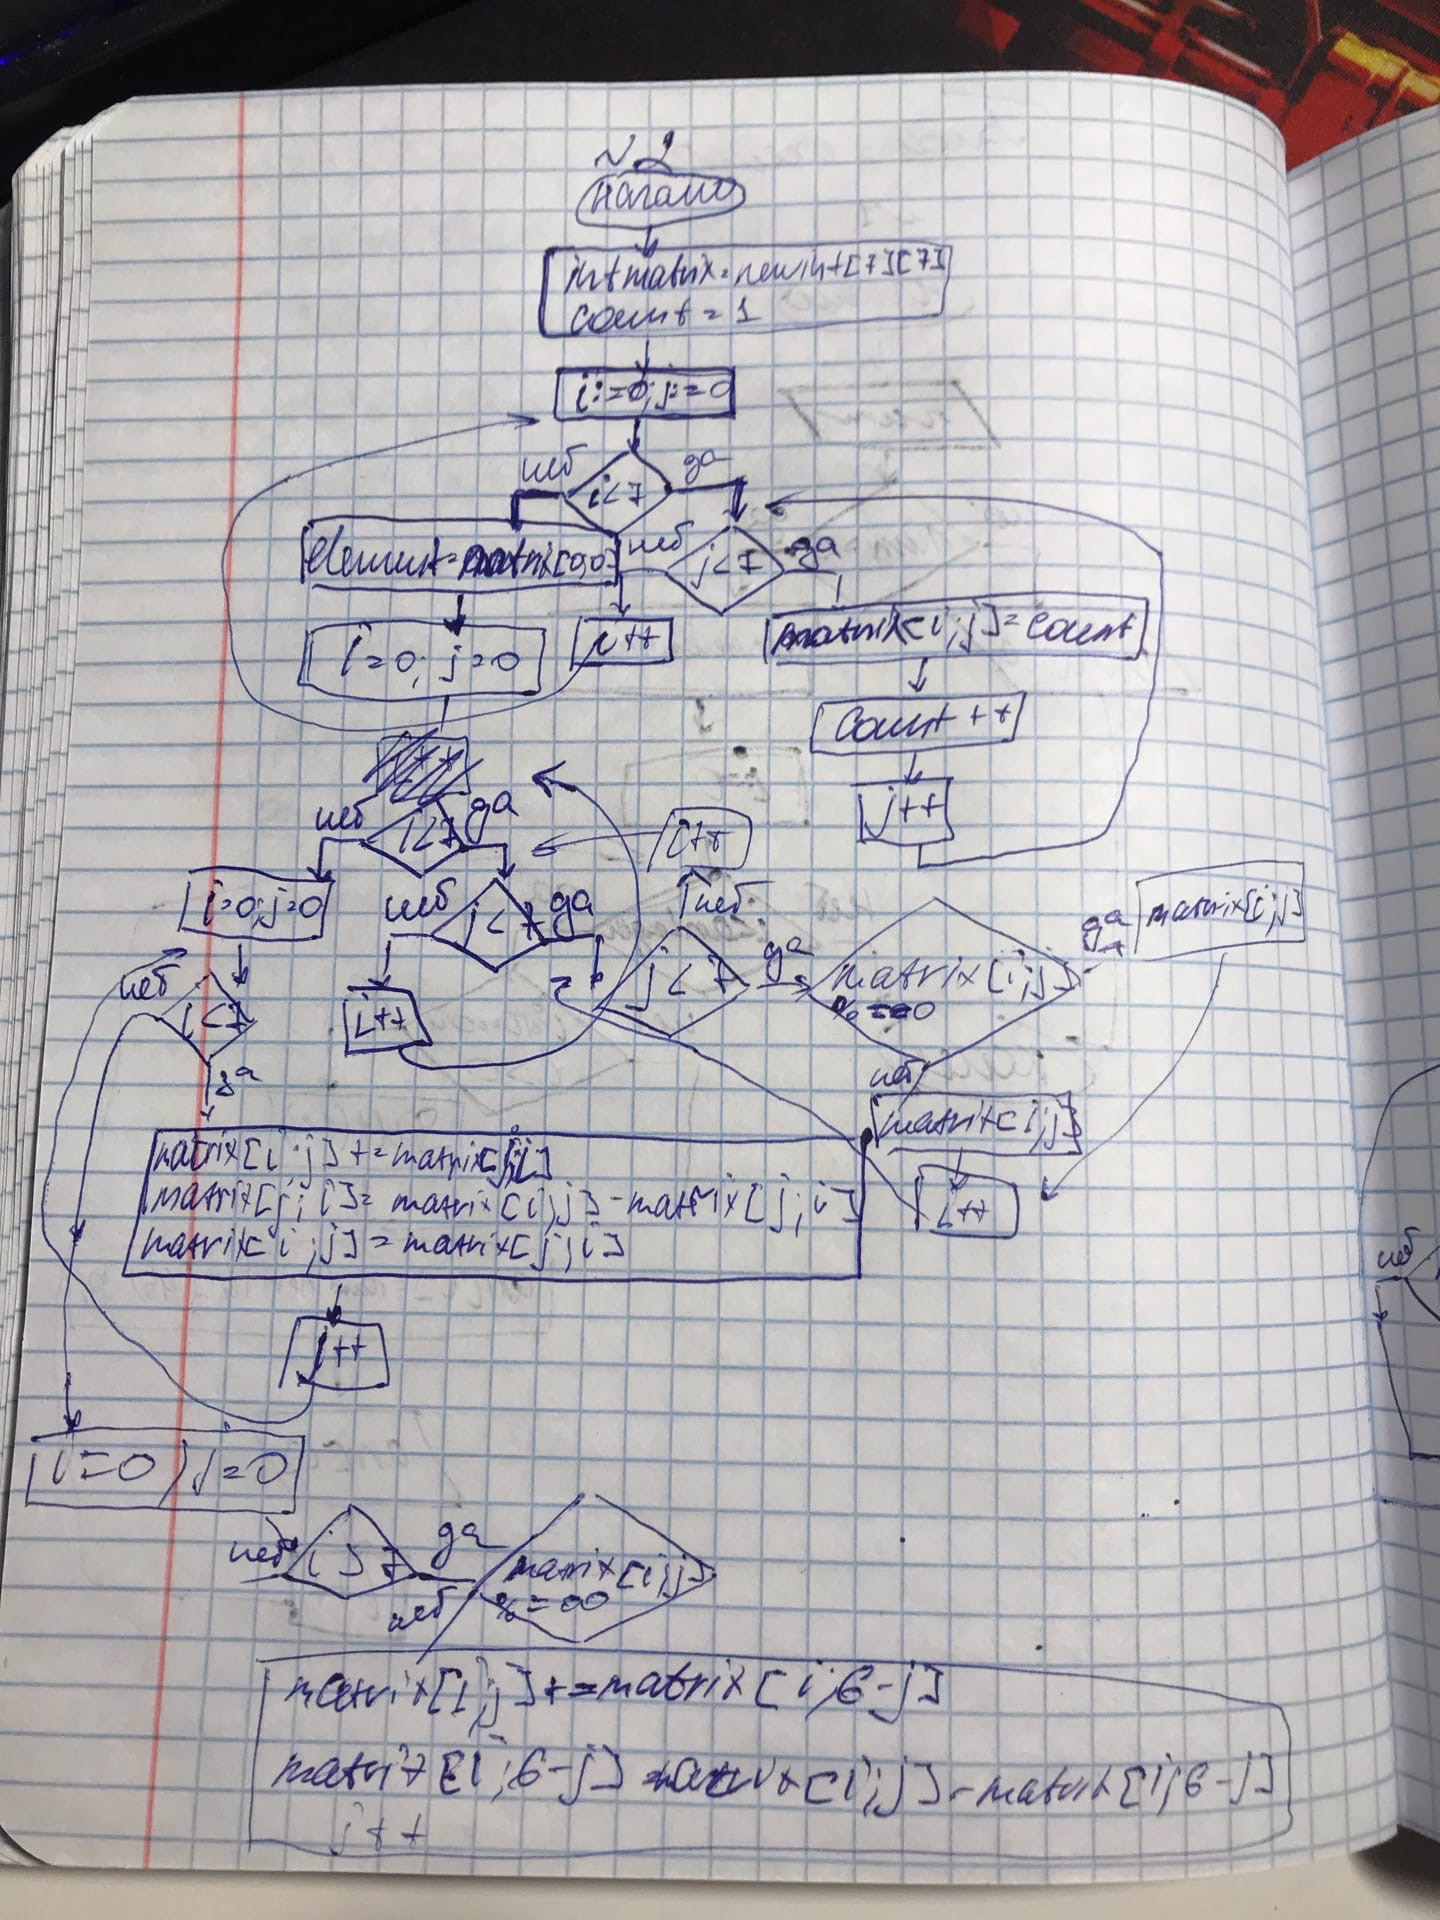 № 2
Начало
int matrix = new int [7][7]
count = 1
i:=0; j:=0
нет
да
i<7
element = matrix[0,0]
нет
j<7
да
i=0; j=0
i++
matrix[i;j] = count
count ++
j++
нет
i<7
да
i++
i=0; j=0
нет
j<7
да
нет
j<7
да
matrix[i;j]
% == 0
да
matrix[i;j]
нет
i<7
да
i++
нет
matrix[i;j]
i++
matrix[i;j] += matrix[j;i]
matrix[j;i] = matrix[i;j] - matrix[j;i]
matrix[i;j] = matrix[j;i]
j++
i=0; j=0
нет
i > 7
да
matrix[i;j]
% = 00
нет
matrix[i;j] += matrix[i;6-j]
matrix[i;6-j] = matrix[i;j] - matrix[i;6-j]
j++
нет